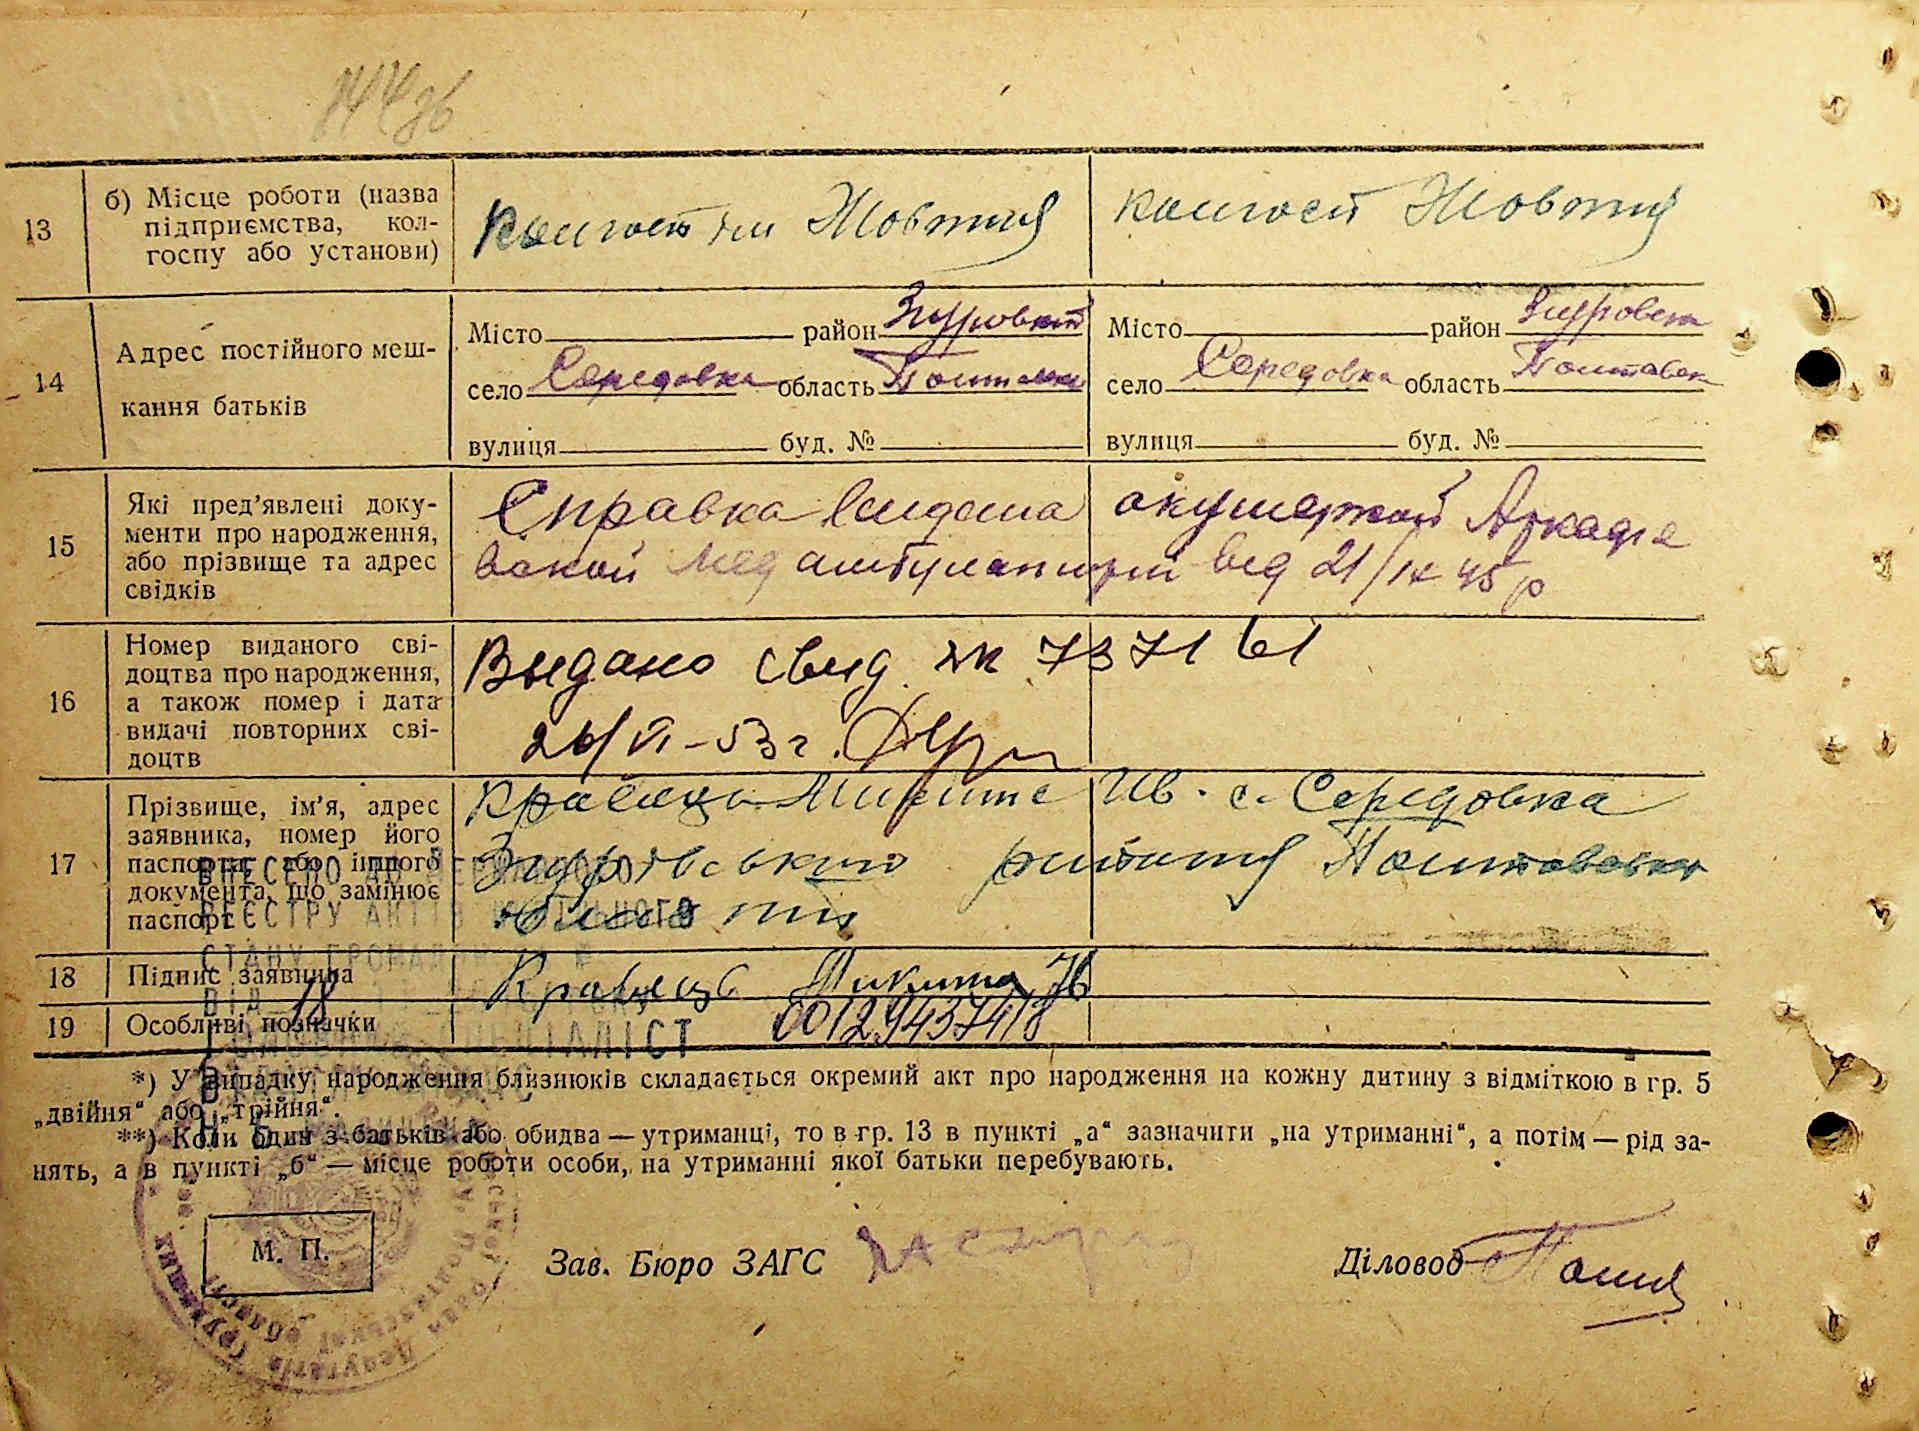 13 б) Місце роботи (назва підприємства, колгоспу або установи)
колгосп ім Жовтня
колгосп Жовтня
14 Адрес постійного мешкання батьків
Місто район Згуровский
село Середовка область Полтавск
вулиця буд. №
Місто район Згуровск
село Середовка область Полтавск
вулиця буд. №
15 Які пред'явлені документи про народження, або прізвище та адрес свідків
Справка видана акушеркой Аркадіе
вской мед амбулаторії від 21/IX 45 р
16 Номер виданого свідоцтва про народження, а також помер і дата видачі повторних свідоцтв
Выдано свид. 737161
26/VI-53 г.
17 Прізвище, ім'я, адрес заявника, номер його паспорта або іншого документа, що замінює паспорт
Кравець Микита Ив. с. Середовка
Згурівського району Полтавської
області
18 Підпис заявника
Кравець Микита Ів
19 Особливі позначки
00129437418
ВНЕСЕНО ДО ДЕРЖАВНОГО
РЕЄСТРУ АКТІВ ЦИВІЛЬНОГО
СТАНУ ГРОМАДЯН
ВІД 18
ГОЛОВНИЙ СПЕЦІАЛІСТ
*) У випадку народження близнюків складається окремий акт про народження на кожну дитину з відміткою в гр. 5
„двійня“ або „трійня“.
**) Коли один з батьків або обидва — утриманці, то в гр. 13 в пункті „а“ зазначити „на утриманні“, а потім — рід за-
нять, а в пункті „б“ — місце роботи особи, на утриманні якої батьки перебувають.
М. П.
Зав. Бюро ЗАГС
Діловод